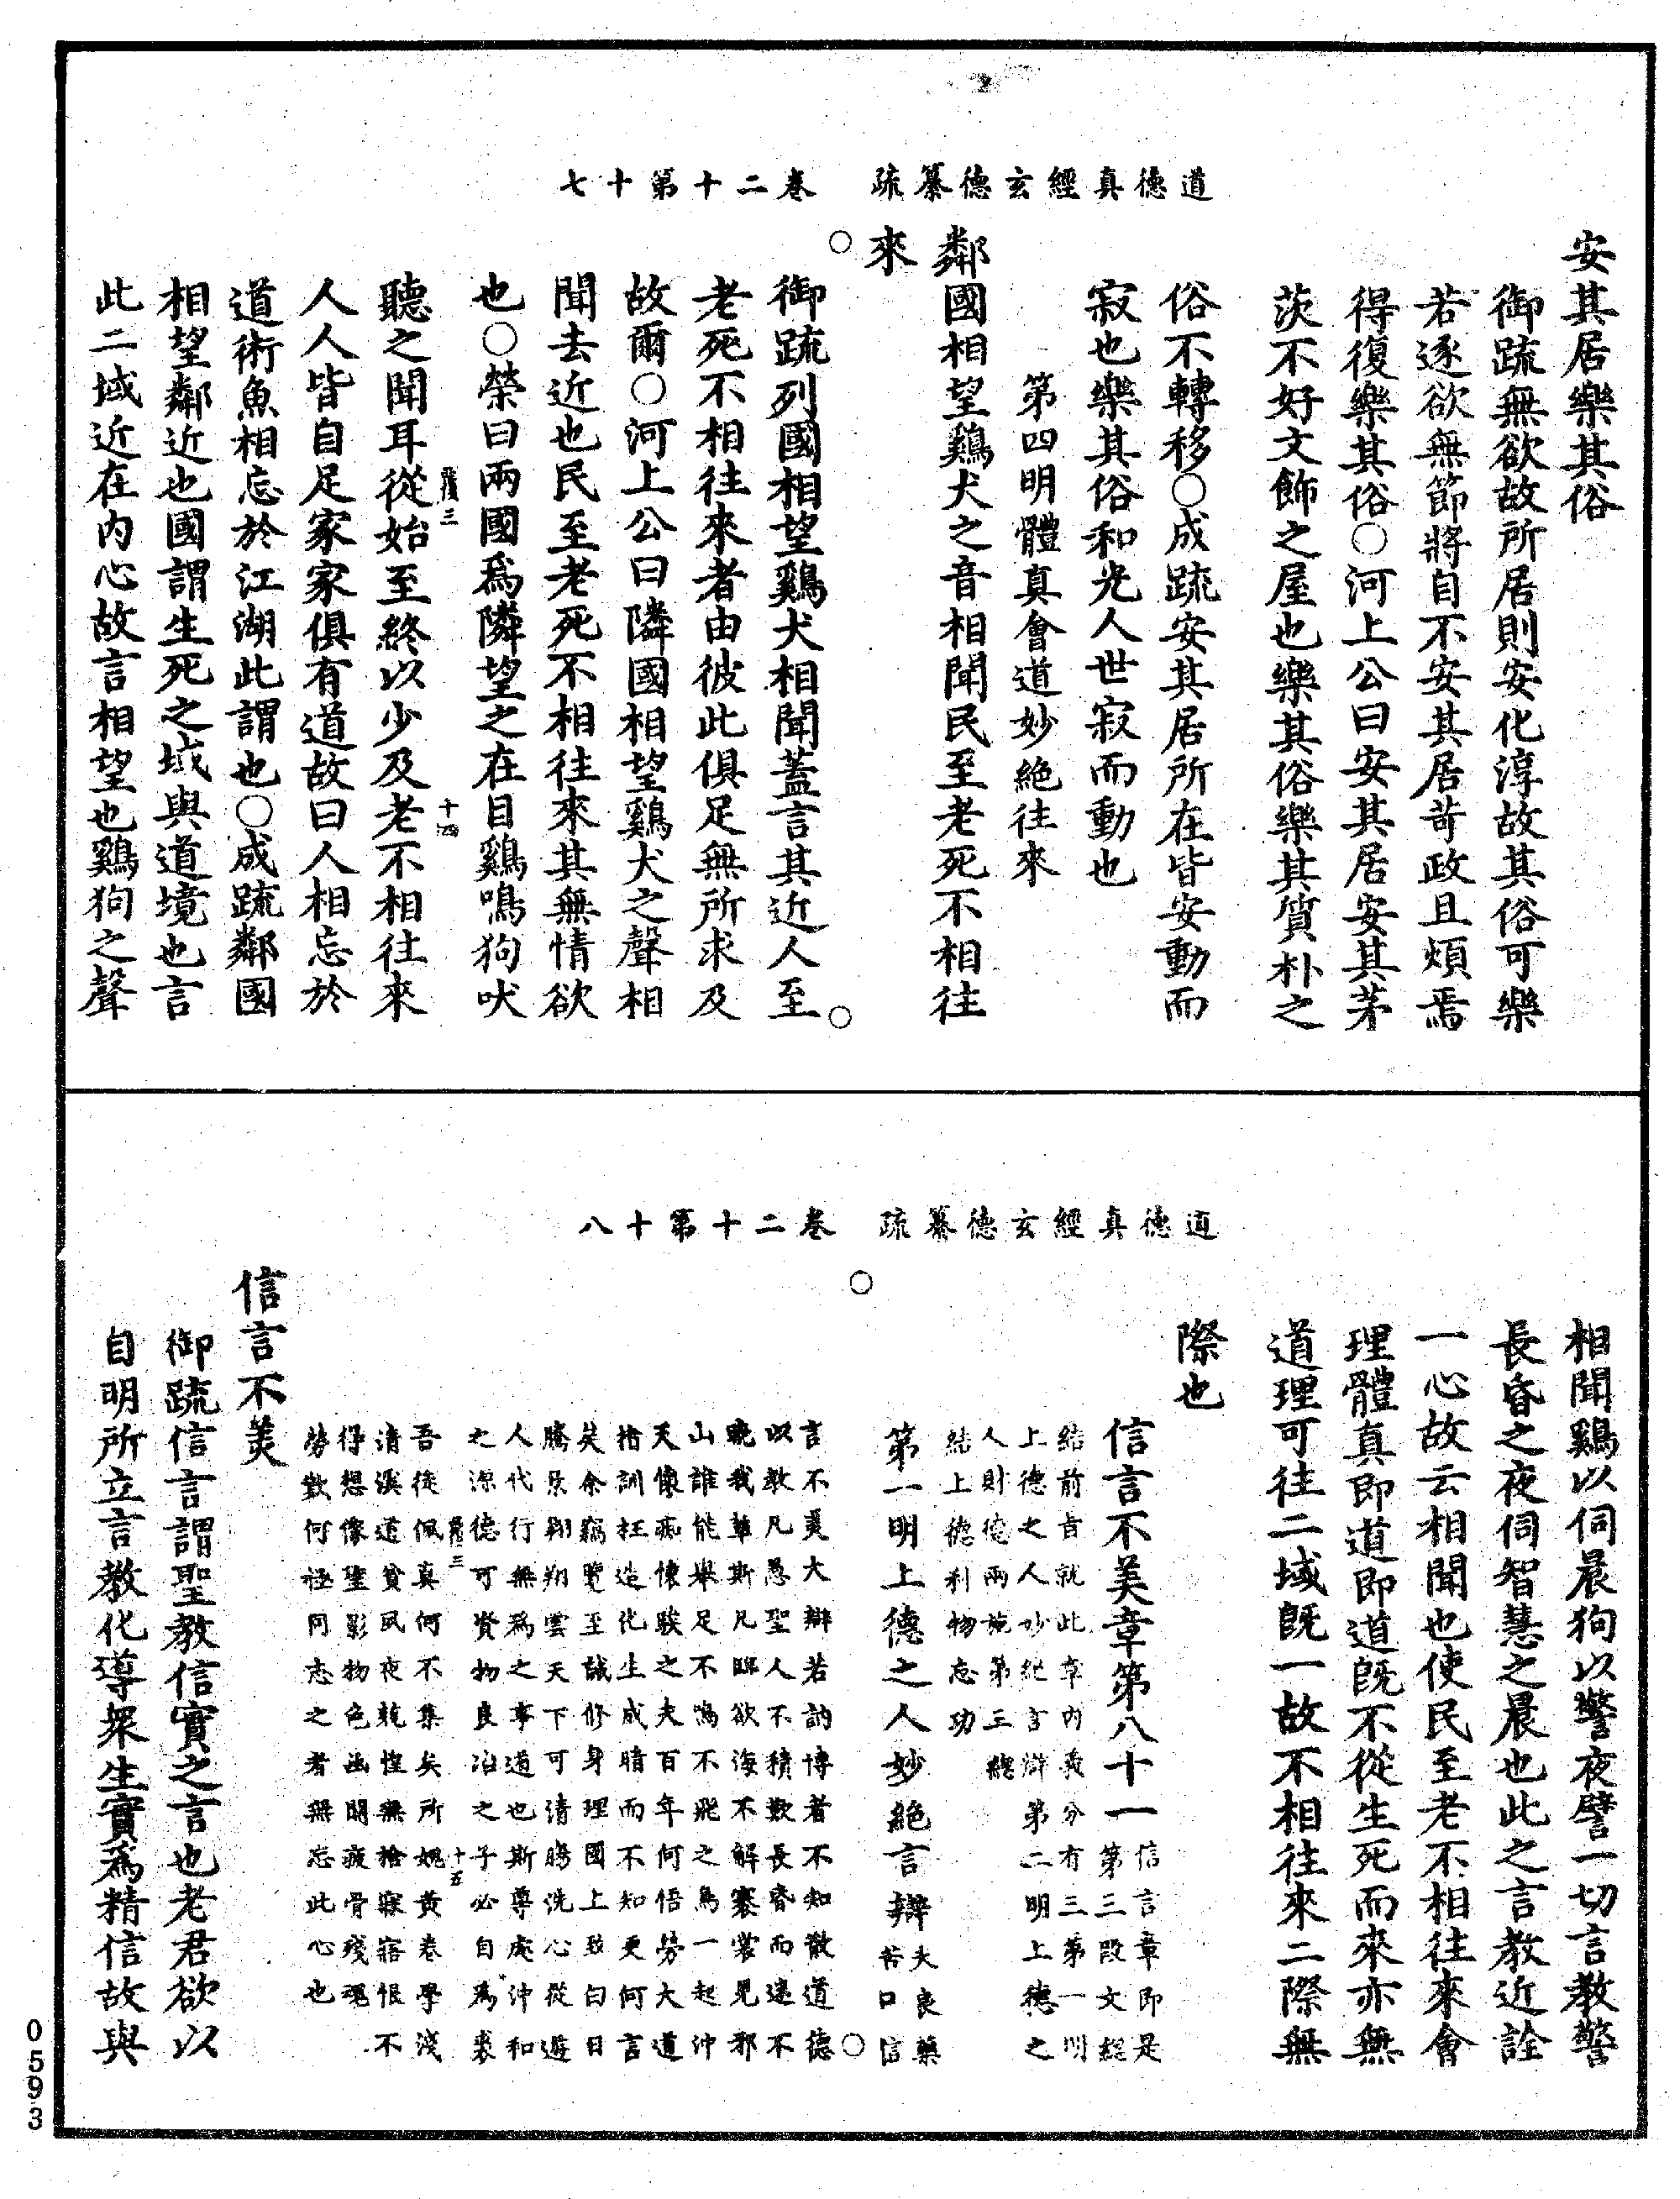 道德真經玄德纂疏　卷二十第十七
安其居樂其俗
御疏無欲故所居則安化淳故其俗可樂
若逐欲無節將自不安其居苛政且煩焉
得復樂其俗○河上公曰安其居安其茅
茨不好文飾之屋也樂其俗樂其質朴之
俗不轉移○成疏安其居所在皆安動而
寂也樂其俗和光人世寂而動也
第四明體真會道妙絕往來
鄰國相望鷄犬之音相聞民至老死不相往
來
御疏列國相望鷄犬相聞蓋言其近人至
老死不相往來者由彼此俱足無所求及
故爾○河上公曰隣國相望鷄犬之聲相
聞去近也民至老死不相往來其無情欲
也○榮曰兩國爲隣望之在目鷄鳴狗吠
聽之聞耳從始至終以少及老不相往來
十四
人人皆自足家家俱有道故曰人相忘於
道術魚相忘於江湖此謂也○成疏鄰國
相望鄰近也國謂生死之域與道境也言
此二域近在内心故言相望也鷄狗之聲
道德真經玄德纂疏　卷二十第十八
相聞鷄以伺晨狗以警夜譬一切言教警
長昏之夜伺智慧之晨也此之言教近詮
一心故云相聞也使民至老不相往來會
理體真即道即道既不從生死而來亦無
道理可往二域既一故不相往來二際無
際也
信言不美章第八十一
信言章即是
第三段文總
結前旨就此章内義分有三第一明
上德之人妙絕言辯第二明上德之
人財德兩施第三總
結上德利物忘功
第一明上德之人妙絕言辯
夫良藥
苦口信
言不美大辯若訥博者不知散道德
以教凡愚聖人不積歎長昏而迷不
曉我華斯凡睱欲海不解褰裳見邪
山誰能舉足不鳴不飛之鳥一起沖
天懷痴懷騃之夫百年何悟勞大道
指訓枉造化生成暗而不知更何言
矣余竊覽至誠修身理國上致白日
騰景翔翔雲天下可清腸洗心從遊
人代行無爲之事道也斯尊處沖和
之源德可資物良冶之子必自爲裘
吾徒佩真何不集矣所媿黃卷學淺
十五
清溪道貧夙夜兢惶無捨寐寤恨不
得想像聖影物色函關疲骨殘魂
勞歎何極同志之者無忘此心也
信言不美
御疏信言謂聖教信實之言也老君欲以
自明所立言教化導衆生實爲精信故與
0593